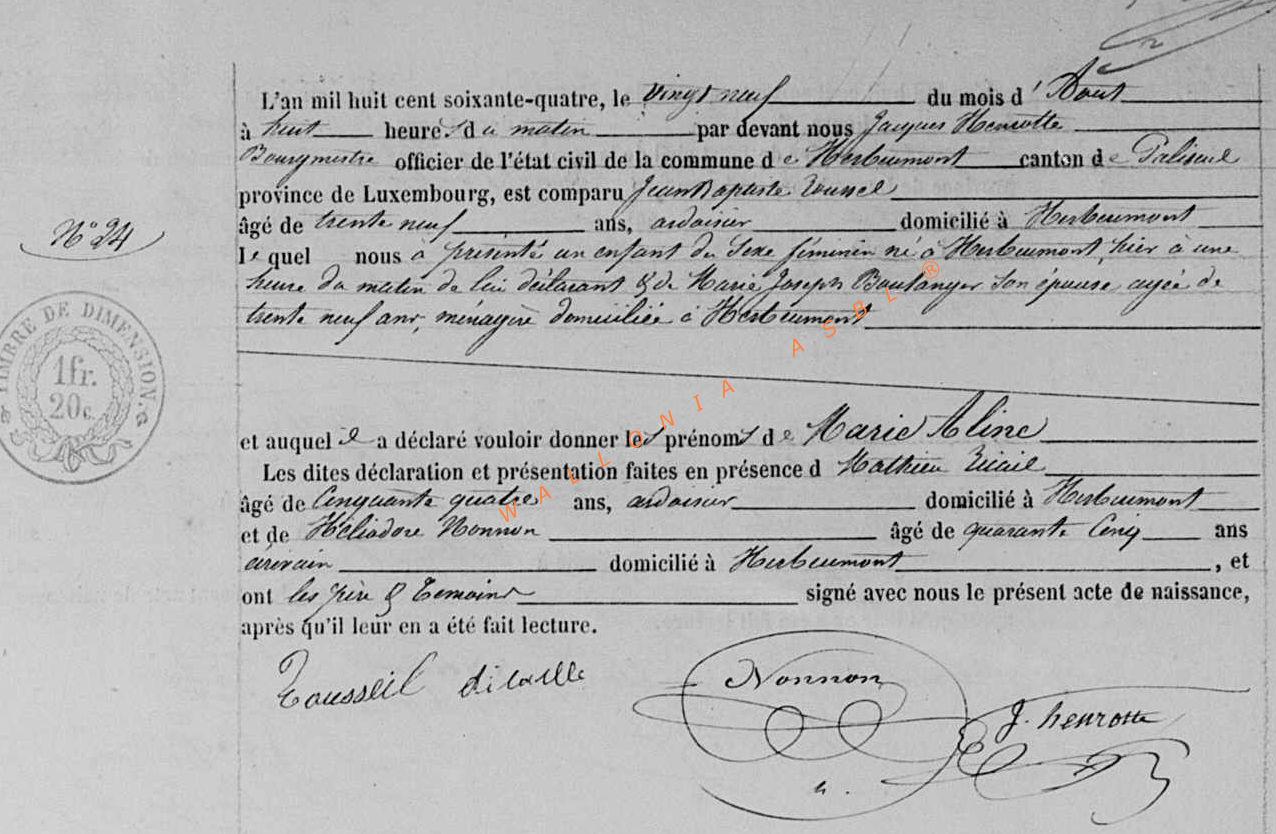 L'an mil huit cent soixante-quatre, le vingt neuf du mois d'Aout
à huit heures du matin par devant nous Jacques Henrotte
Bourgmestre officier de l'état civil de la commune de Herbeumont canton de Paliseul
province de Luxembourg, est comparu Jean Baptiste Roussel
âgé de trente neuf ans, ardoisier domicilié à Herbeumont
N° 24
le quel nous a présenté un enfant du sexe féminin né à Herbeumont, hier à une
heure du matin de lui déclarant & de Marie Joseph Boulanger son épouse agée de
trente neuf ans, ménagère domiciliée à Herbeumont
TIMBRE DE DIMENSION.
1 fr.
20 c.
WALLONIA ASBL ®
et auquel il a déclaré vouloir donner les prénoms de Marie Aline
Les dites déclaration et présentation faites en présence d Mathieu
âgé de Cinquante quatre ans, ardoisier domicilié à Herbeumont
et de Héliodore Nonnon âgé de quarante Cinq ans
écrivain domicilié à Herbeumont, et
ont les père & Temoins signé avec nous le présent acte de naissance,
après qu'il leur en a été fait lecture.
Nonnon
J. henrotte